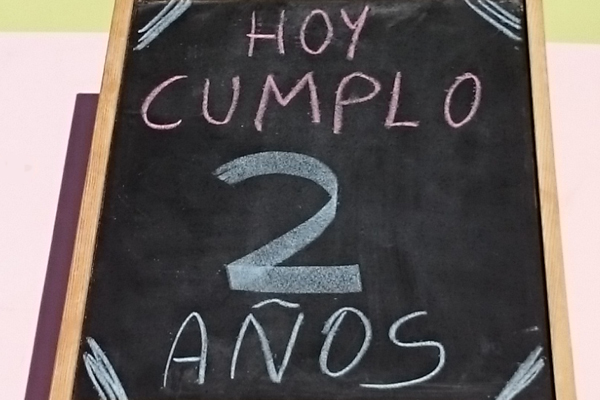 HOY
CUMPLO
2
AÑOS